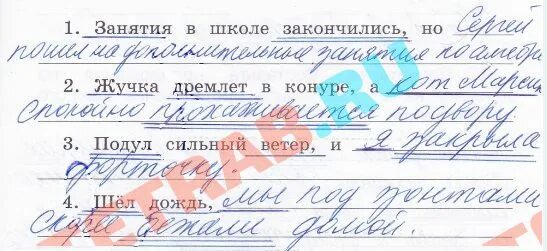 1. Занятия в школе закончились, но Сергей
пошел на дополнительные занятия по алгебре
2. Жучка дремлет в конуре, а кот Марсик
спокойно прохаживается по двору.
3. Подул сильный ветер, и я закрыла
форточку.
4. Шёл дождь, мы под зонтами
скорее бежали домой.
TETRAB.RU